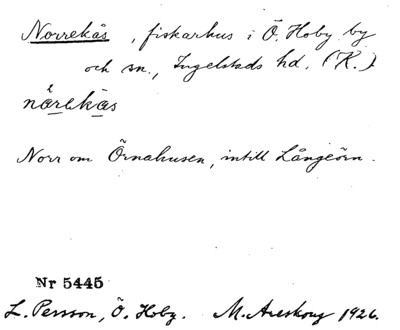 Norrekås, fiskarhus i Ö. Hoby by
och sn., Ingelstads hd. (K.)
nȧrekas
Norr om Örnahusen, intill Långeörn.
Nr 5445
L. Persson, Ö. Hoby. M. Areskoug 1926.